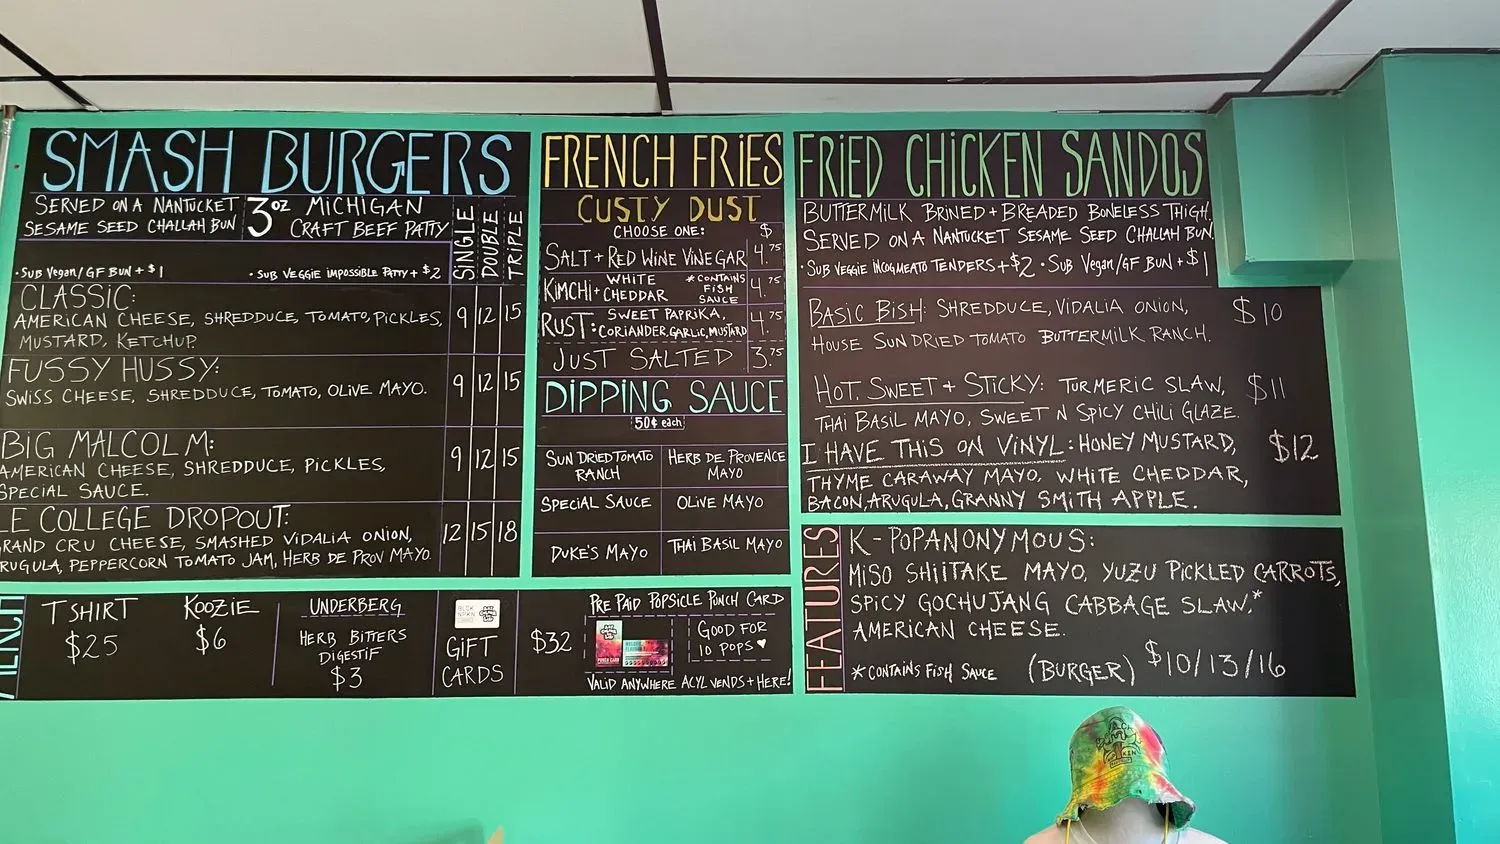 SMASH BURGERS
SERVED ON A NANTUCKET
SESAME SEED CHALLAH BUN
3OZ MICHIGAN
CRAFT BEEF PATTY
SINGLE
DOUBLE
TRIPLE
•SUB VEGAN/GF BUN + $1
•SUB VEGGIE IMPOSSIBLE PATTY + $2
CLASSIC:
AMERICAN CHEESE, SHREDDUCE, TOMATO, PICKLES,
MUSTARD, KETCHUP.
9 12 15
FUSSY HUSSY:
SWISS CHEESE, SHREDDUCE, TOMATO, OLIVE MAYO.
9 12 15
BIG MALCOLM:
AMERICAN CHEESE, SHREDDUCE, PICKLES,
SPECIAL SAUCE.
9 12 15
LE COLLEGE DROPOUT:
GRAND CRU CHEESE, SMASHED VIDALIA ONION,
RUGULA, PEPPERCORN TOMATO JAM, HERB DE PROV MAYO.
12 15 18
FRENCH FRIES
CUSTY DUST
CHOOSE ONE: $
SALT + RED WINE VINEGAR 4.75
KIMCHI + WHITE CHEDDAR *CONTAINS FISH SAUCE 4.75
RUST: SWEET PAPRIKA, CORIANDER, GARLIC, MUSTARD 4.75
JUST SALTED 3.75
DIPPING SAUCE
50¢ each
SUN DRIED TOMATO RANCH
HERB DE PROVENCE MAYO
SPECIAL SAUCE
OLIVE MAYO
DUKE'S MAYO
THAI BASIL MAYO
FRIED CHICKEN SANDOS
BUTTERMILK BRINED + BREADED BONELESS THIGH.
SERVED ON A NANTUCKET SESAME SEED CHALLAH BUN.
•SUB VEGGIE INCOGMEATO TENDERS + $2 •SUB VEGAN/GF BUN + $1
BASIC BISH: SHREDDUCE, VIDALIA ONION, $10
HOUSE SUN DRIED TOMATO BUTTERMILK RANCH.
HOT, SWEET + STICKY: TURMERIC SLAW, $11
THAI BASIL MAYO, SWEET N SPICY CHILI GLAZE.
I HAVE THIS ON VINYL: HONEY MUSTARD, $12
THYME CARAWAY MAYO, WHITE CHEDDAR,
BACON, ARUGULA, GRANNY SMITH APPLE.
FEATURES
K-POPANONYMOUS:
MISO SHIITAKE MAYO, YUZU PICKLED CARROTS,
SPICY GOCHUJANG CABBAGE SLAW,*
AMERICAN CHEESE.
*CONTAINS FISH SAUCE (BURGER) $10/13/16
T SHIRT
$25
KOOZIE
$6
UNDERBERG
HERB BITTERS
DIGESTIF
$3
GIFT
CARDS
$32
PRE PAID POPSICLE PUNCH CARD
GOOD FOR
10 POPS ♥
VALID ANYWHERE ACYL VENDS + HERE!